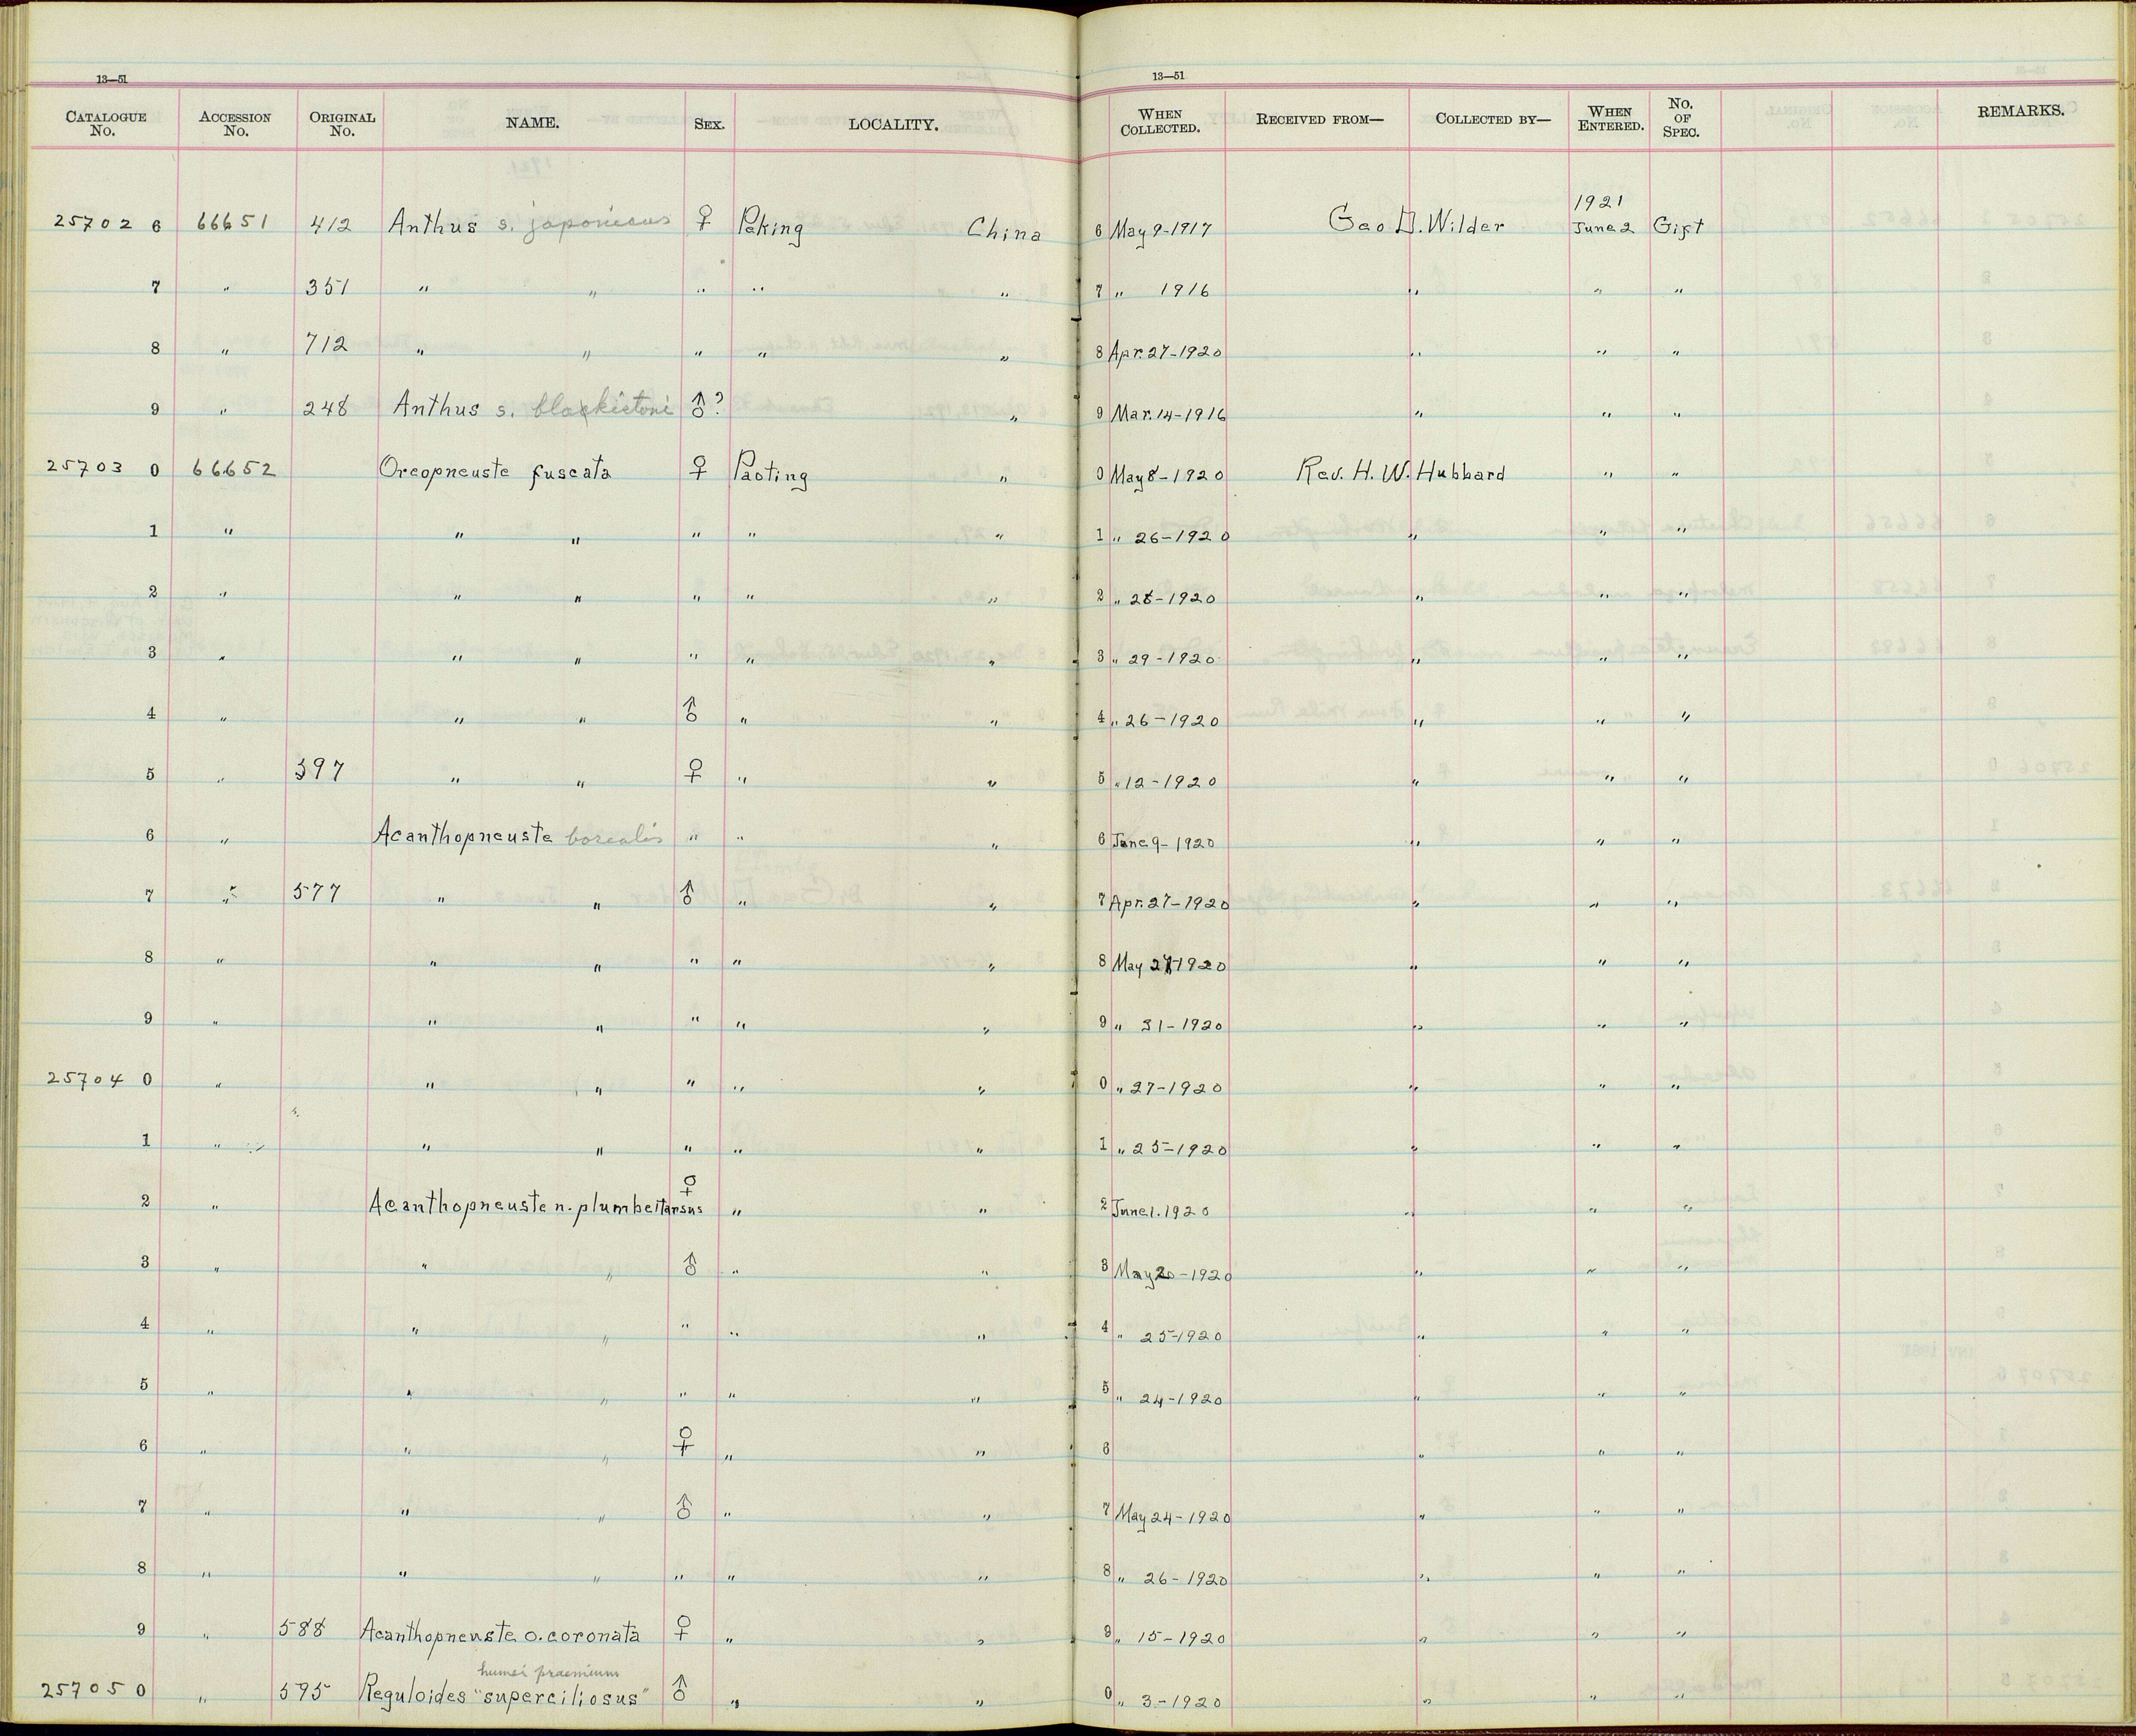 13—51
13—51
CATALOGUE No. ACCESSION No. ORIGINAL No. NAME. SEX. LOCALITY. WHEN COLLECTED. RECEIVED FROM— COLLECTED BY— WHEN ENTERED. No. OF SPEC. REMARKS.
1921
25702 6 66651 412 Anthus s. japonicus ♀ Peking China 6 May 9-1917 Geo D. Wilder June 2 Gift
7 " 351 " " " " " 7 " 1916 " " "
8 " 712 " " " " " 8 Apr. 27-1920 " " "
9 " 248 Anthus s. blackistoni ♂? " 9 Mar. 14-1916 " " "
25703 0 66652 Oreopneuste fuscata ♀ Paoting " 0 May 8-1920 Rev. H. W. Hubbard " "
1 " " " " " " 1 " 26-1920 " " "
2 " " " " " " 2 " 28-1920 " " "
3 " " " " " " 3 " 29-1920 " " "
4 " " " ♂ " " 4 " 26-1920 " " "
5 " 397 " " ♀ " " 5 " 12-1920 " " "
6 " Acanthopneuste borealis " " " 6 June 9-1920 " " "
7 " 577 " " ♂ " " 7 Apr. 27-1920 " " "
8 " " " " " " 8 May 27-1920 " " "
9 " " " " " " 9 " 31-1920 " " "
25704 0 " " " " " " 0 " 27-1920 " " "
1 " " " " " " 1 " 25-1920 " " "
2 " Acanthopneuste n. plumbeitarsus ♀ " " 2 June 1. 1920 " " "
3 " " " ♂ " " 3 May 20-1920 " " "
4 " " " " " " 4 " 25-1920 " " "
5 " " " " " " 5 " 24-1920 " " "
6 " " " ♀ " " 6 " " "
7 " " " ♂ " " 7 May 24-1920 " " "
8 " " " " " " 8 " 26-1920 " " "
9 " 588 Acanthopneuste o. coronata ♀ " " 9 " 15-1920 " " "
humei praemium
25705 0 " 595 Reguloides "superciliosus" ♂ " " 0 " 3-1920 " " "